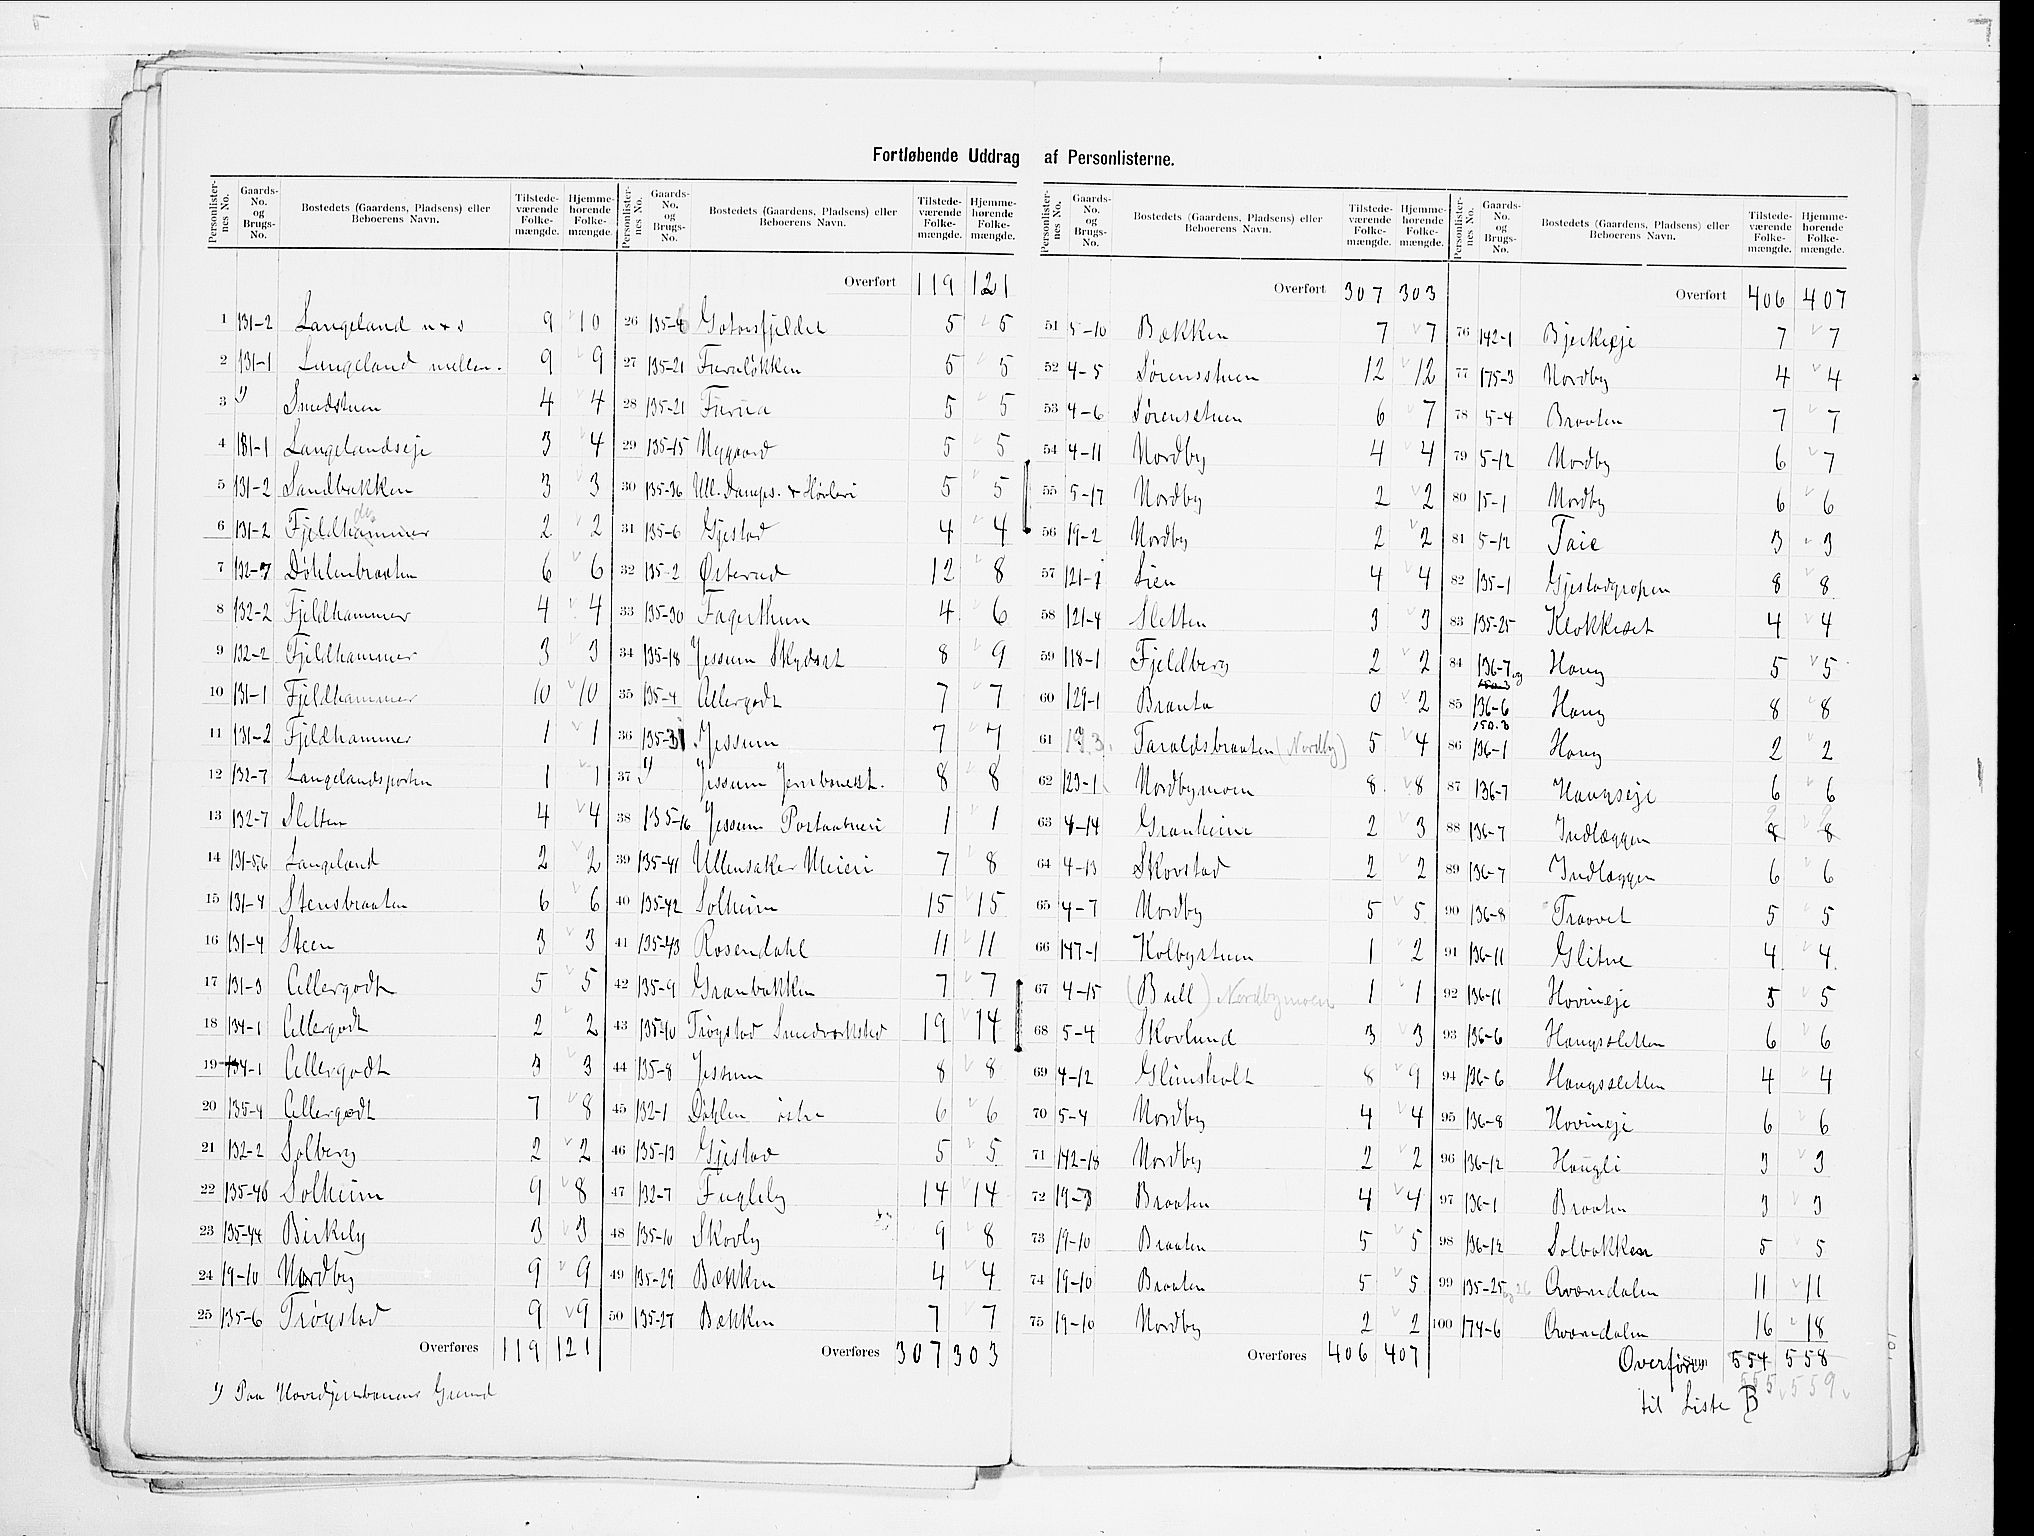 Fortløbende Uddrag af Personlisterne.
Personlisternes No. Gaards-No. og Brugs-No. Bostedets (Gaardens, Pladsens) eller Beboerens Navn. Tilstedeværende Folkemængde. Hjemmehørende Folkemængde.
1 131-2 Langeland n + s 9 10
2 131-1 Langeland mellem. 9 9
3 1) Smedstuen 4 4
4 131-1 Langelandseje 3 4
5 131-2 Sandbakken 3 3
6 131-2 Fjeldhammer 2 2
7 132-7 Døhlenbraaten 6 6
8 132-2 Fjeldhammer 4 4
9 132-2 Fjeldhammer 3 3
10 131-1 Fjeldhammer 10 10
11 131-2 Fjeldhammer 1 1
12 132-7 Langelandsporten 1 1
13 132-7 Sletten 4 4
14 131-5,6 Langeland 2 2
15 131-4 Stensbraaten 6 6
16 131-4 Steen 3 3
17 131-3 Allergodt 5 5
18 134-1 Allergodt 2 2
19 134-1 Allergodt 3 3
20 135-4 Allergodt 7 8
21 132-2 Solberg 2 2
22 135-46 Solheim 9 8
23 135-44 Birkely 3 3
24 19-10 Nordby 9 9
25 135-6 Trøgstad 9 9
Overføres 119 121
1) Paa Hovedjernbanens Grund
Personlisternes No. Gaards-No. og Brugs-No. Bostedets (Gaardens, Pladsens) eller Beboerens Navn. Tilstedeværende Folkemængde. Hjemmehørende Folkemængde.
Overført 119 121
26 135-6 Gotaasfjeldet 5 5
27 135-21 Furuløkken 5 5
28 135-21 Furua 5 5
29 135-15 Nygaard 5 5
30 135-36 Ull. Damps. & Høvleri 5 5
31 135-6 Gjestad 4 4
32 135-2 Østerud 12 8
33 135-30 Fagerthun 4 6
34 135-18 Jessum Skydsst 8 9
35 135-4 Allergodt 7 7
36 135-31 Jessum 7 7
37 1) Jessum Jernbanest. 8 8
38 135-16 Jessum Postaabneri 1 1
39 135-41 Ullensaker Meieri 7 8
40 135-42 Solheim 15 15
41 135-43 Rosendahl 11 11
42 135-9 Granbakken 7 7
43 135-10 Trøgstad Smedværksted 19 14
44 135-8 Jessum 8 8
45 132-1 Døhlen østre 6 6
46 135-13 Gjestad 5 5
47 132-7 Fugleby 14 14
48 135-10 Skovly 9 8
49 135-29 Bækken 4 4
50 135-27 Bækken 7 7
Overføres 307 303
Personlisternes No. Gaards-No. og Brugs-No. Bostedets (Gaardens, Pladsens) eller Beboerens Navn. Tilstedeværende Folkemængde. Hjemmehørende Folkemængde.
Overført 307 303
51 5-10 Bækken 7 7
52 4-5 Sørensstuen 12 12
53 4-6 Sørensstuen 6 7
54 4-11 Nordby 4 4
55 5-17 Nordby 2 2
56 19-2 Nordby 2 2
57 121-1 Lien 4 4
58 121-4 Sletten 3 3
59 118-1 Fjeldberg 2 2
60 129-1 Branta 0 2
61 Taraldsbraaten (Nordby) 5 4
62 123-1 Nordbymoen 8 8
63 4-14 Granheim 2 3
64 4-13 Skovstad 2 2
65 4-7 Nordby 5 5
66 147-1 Kolbystuen 1 2
67 4-15 (Bull) Nordbymoen 1 1
68 5-4 Skovlund 3 3
69 4-12 Glimsholt 8 9
70 5-4 Nordby 4 4
71 142-18 Nordby 2 2
72 19-3 Braaten 4 4
73 19-10 Braaten 5 5
74 19-10 Braaten 5 5
75 19-10 Nordby 2 2
Overføres 406 407
Personlisternes No. Gaards-No. og Brugs-No. Bostedets (Gaardens, Pladsens) eller Beboerens Navn. Tilstedeværende Folkemængde. Hjemmehørende Folkemængde.
Overført 406 407
76 142-1 Bjerkeeje 7 7
77 175-3 Nordby 4 4
78 5-4 Braaten 7 7
79 5-12 Nordby 6 7
80 15-1 Nordby 6 6
81 5-12 Taie 3 3
82 135-1 Gjestadgropen 8 8
83 135-25 Klokkeset 4 4
84 136-7 og 150.3 Haug 5 5
85 136-6 150.3 Haug 8 8
86 136-1 Haug 2 2
87 136-7 Haugseje 6 6
88 136-7 Indlæggen 8 8
89 136-7 Indlæggen 6 6
90 136-8 Traavet 5 5
91 136-11 Glitne 4 4
92 136-11 Hovineje 5 5
93 136-6 Haugssletten 6 6
94 136-6 Haugssletten 4 4
95 136-8 Hovineje 6 6
96 136-12 Haugli 3 3
97 136-1 Braaten 3 3
98 136-12 Solbakken 5 5
99 135-25 og 26 Qværndalen 11 11
100 174-6 Qværndalen 16 18
Overføres 554 558
555 559
til Liste B